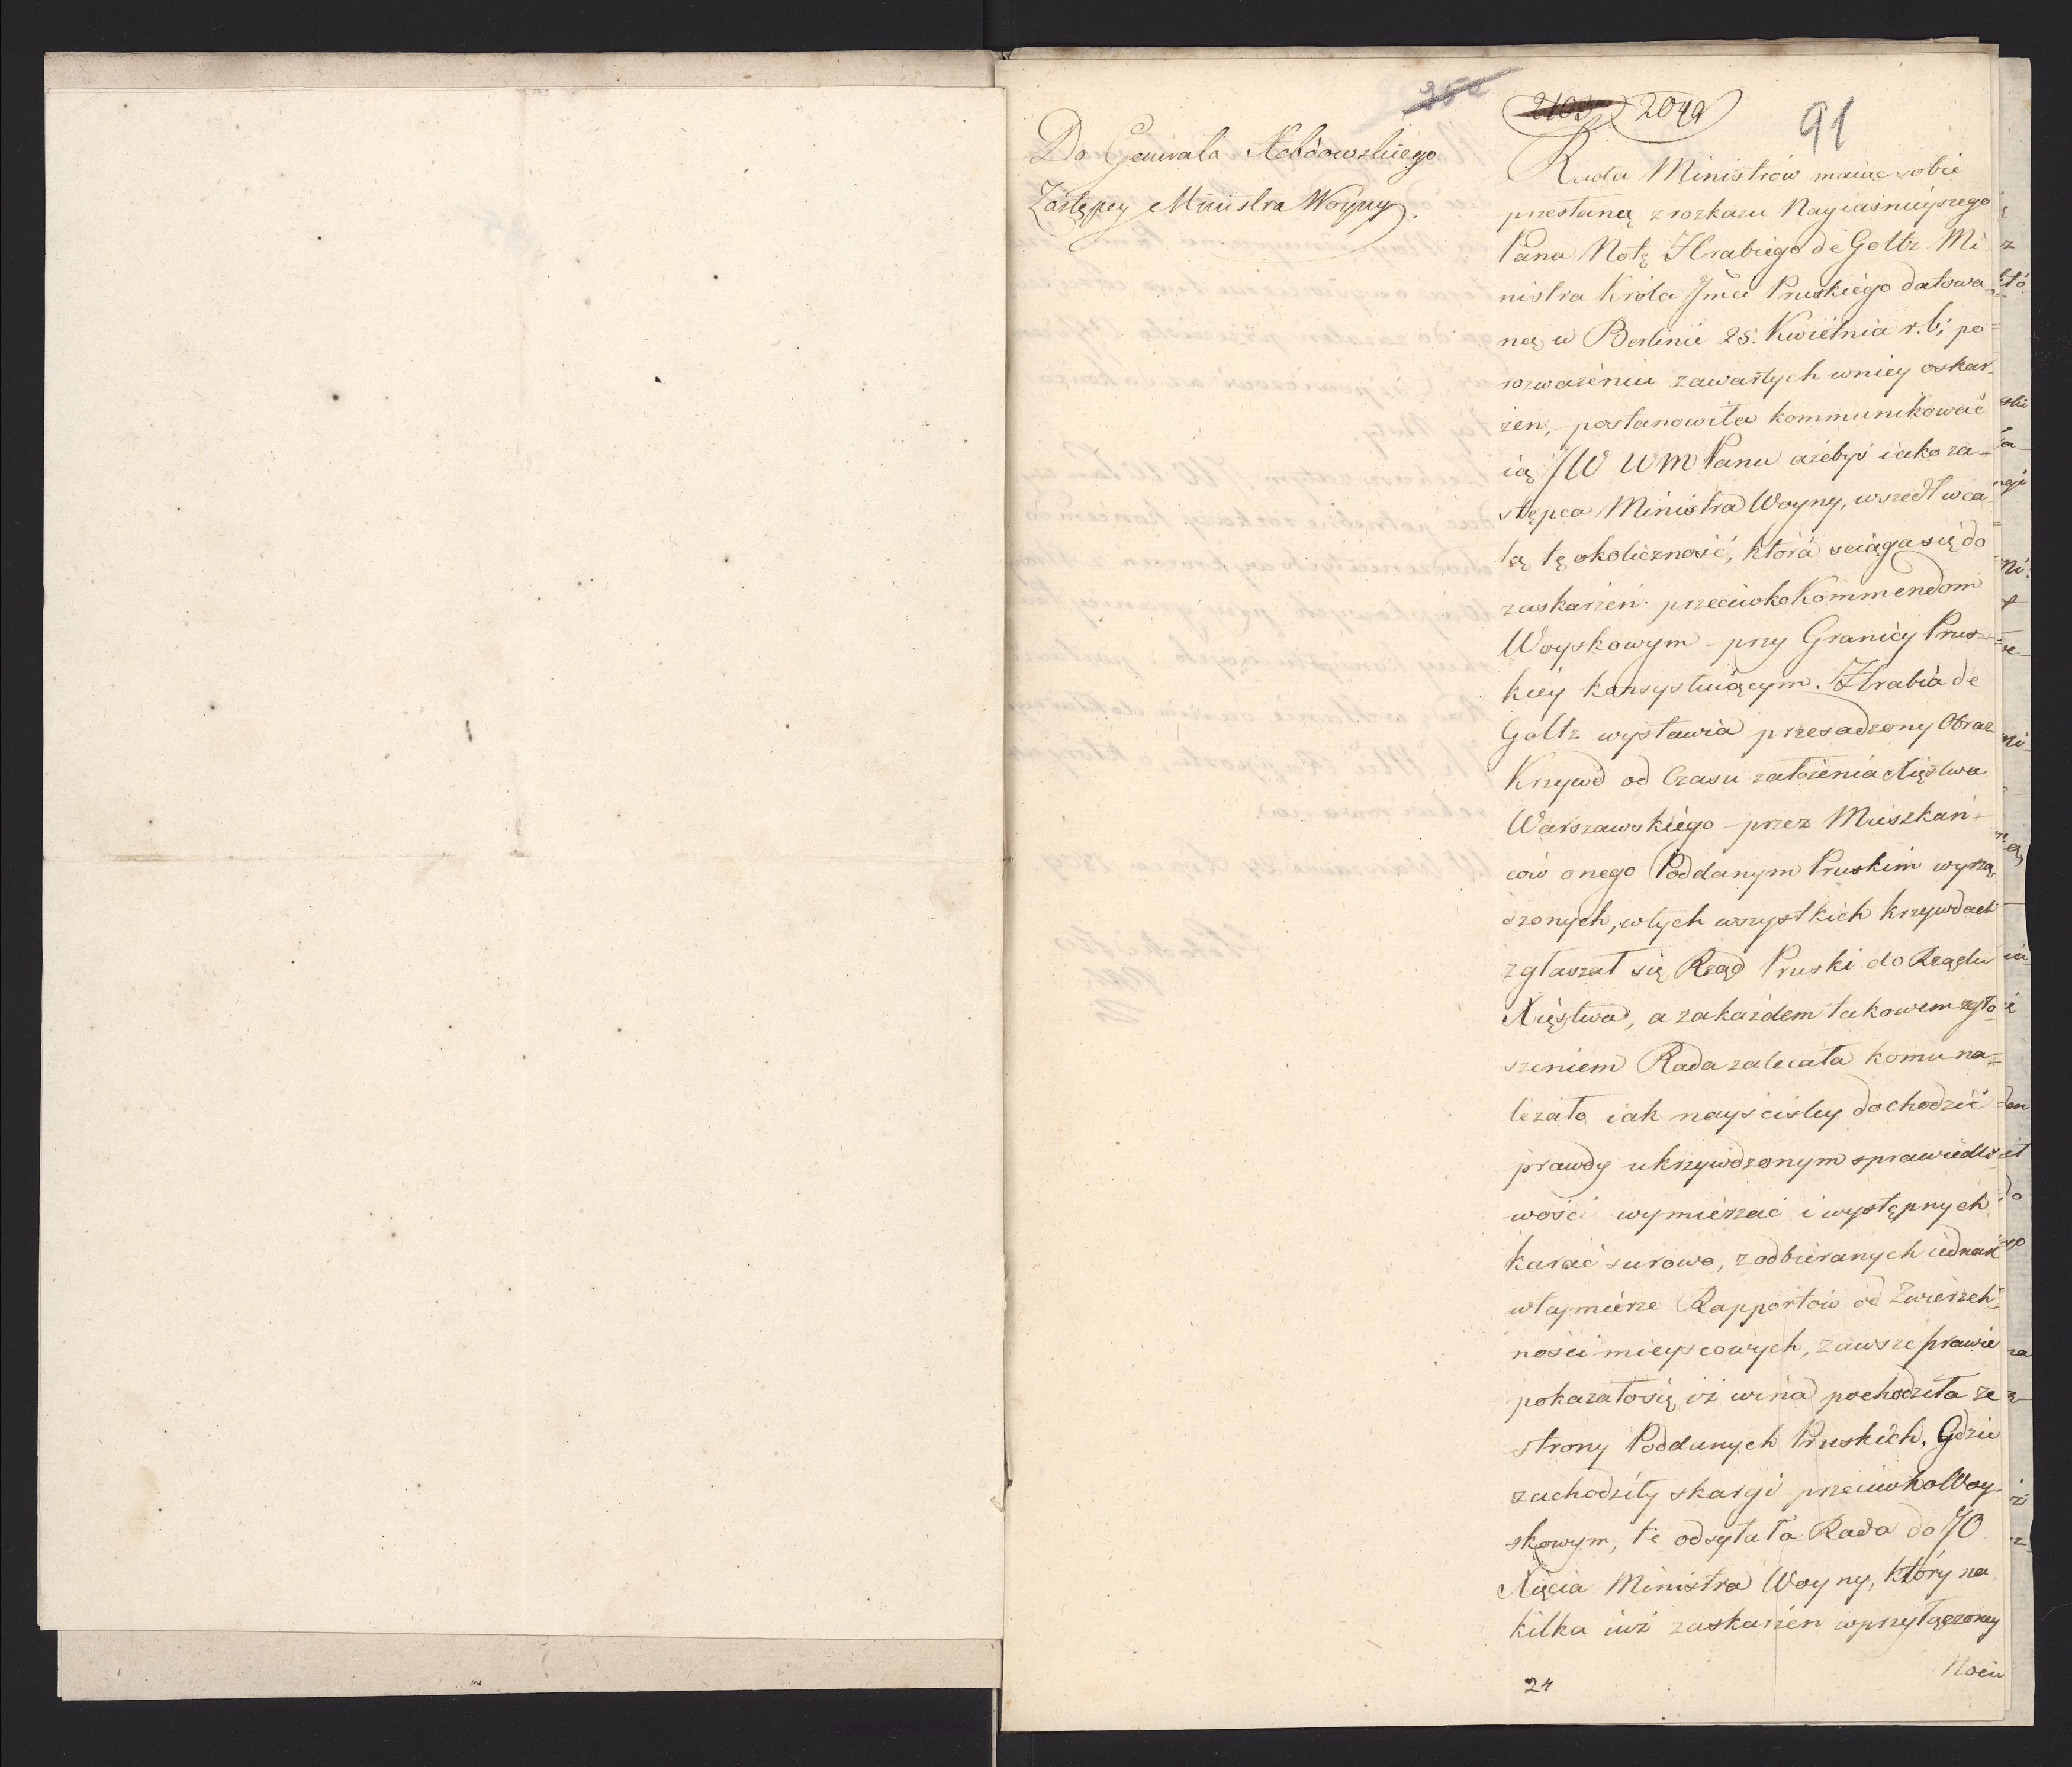 2049
91
Do Generała Hebdowskiego
Zastępcy Ministra Woyny.
Rada Ministrów maiąc sobie
przesłaną z rozkazu Nayiaśnieyszego
Pana Notę Hrabiego de Goltz Mi-
nistra Króla Jmci Pruskiego datowa-
ną w Berlinie 25. Kwietnia r. b; po
rozważeniu zawartych w niey oskar-
żen, postanowiła kommunikować
ią JW WM Panu ażebyś iako za-
stępca Ministra Woyny, wszedł w ca-
łą tę okoliczność, która ściąga się do
zaskarżen przeciwko Kommendom
Woyskowym przy Granicy Prus-
kiéy konsystuiącym. Hrabia de
Goltz wystawia przesadzony Obraz
Krzywd od Czasu założenia Xięstwa
Warszawskiégo przez Mieszkań-
ców onego Poddanym Pruskim wyrzą
dzonych, w tych wszystkich krzywdach
zgłaszał się Rząd Pruski do Rządu
Xięstwa, a za każdem takowem zgło-
szeniem Rada zalecała komu na-
leżało iak nayściśley dochodzić
prawdy ukrzywdzonym sprawiedli-
wość wymierzać i występnych
karać surowo, z odbieranych iednak
w tey mierze Rapportów od Zwierzch-
ności mieyscowych, zawsze prawie
pokazało się iż wina pochodziła ze
strony Poddanych Pruskich. Gdzie
zachodziły skargi przeciwko Woy-
skowym, te odsyłała Rada do JO
Xięcia Ministra Woyny, który na
kilka iuż zaskarżen w przyłączoney
Nocie
24